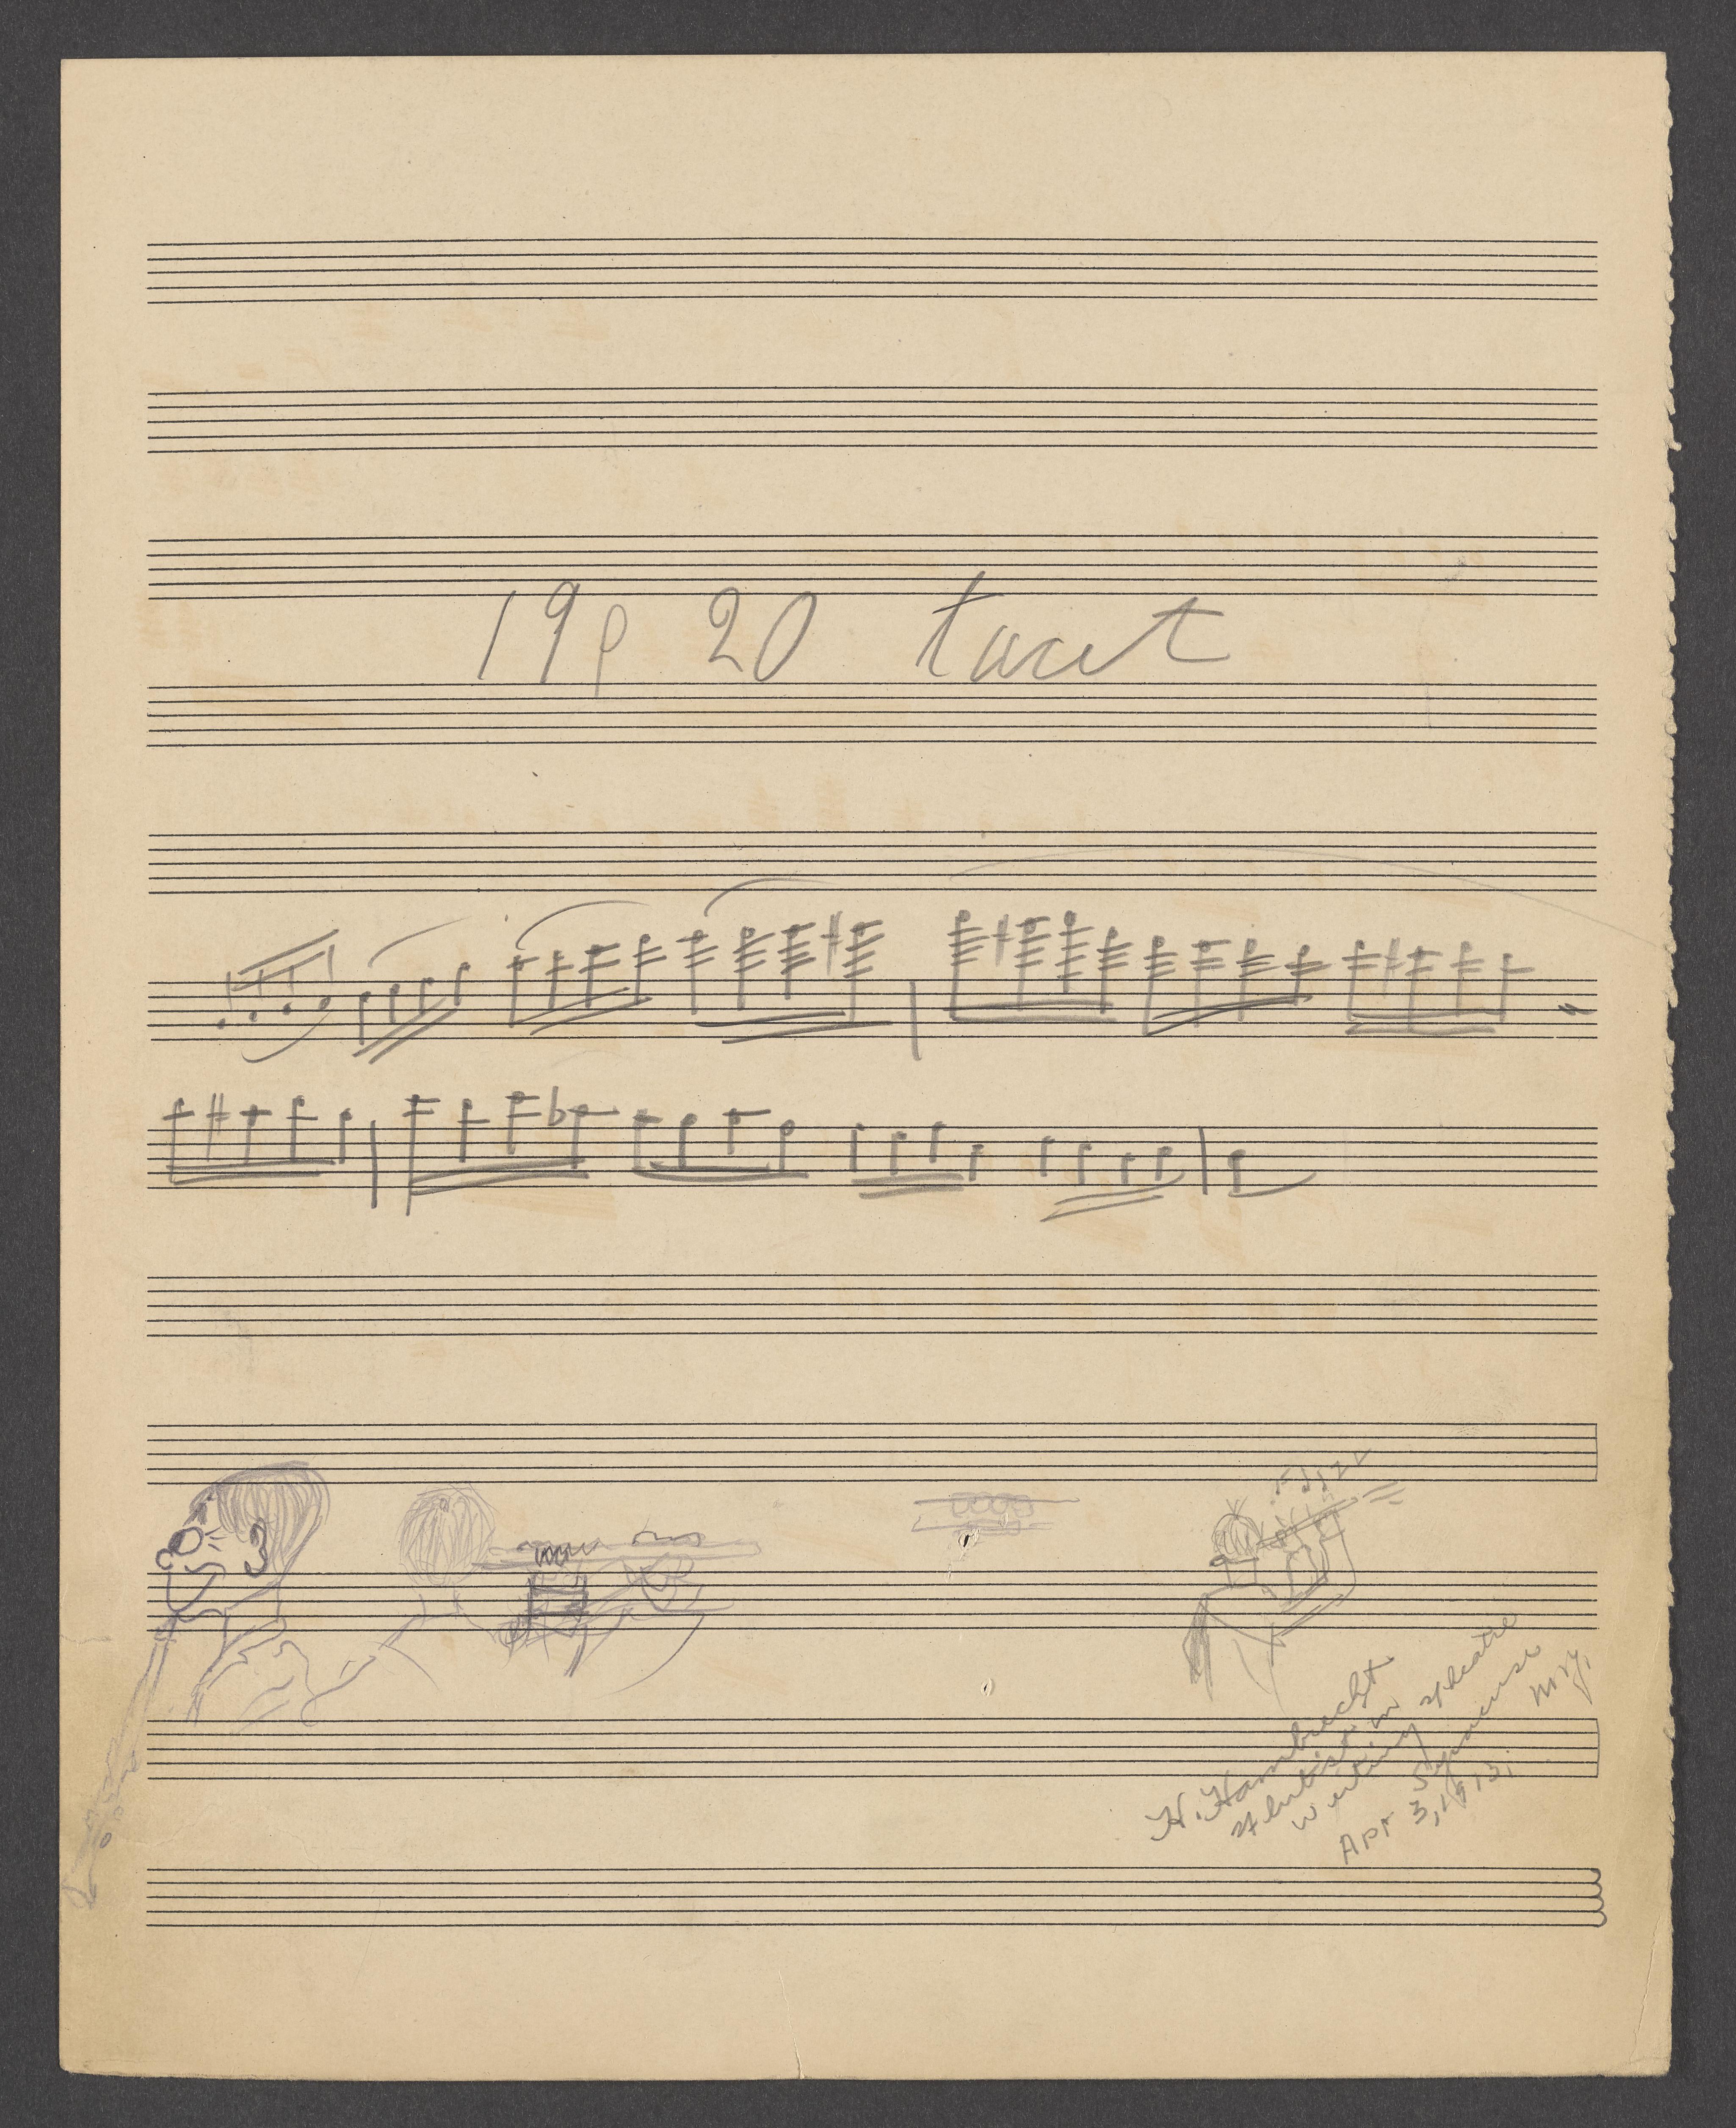 19 & 20 tacet
H. Hambrecht
flutist in
Wieting theatre
Syracuse
N.Y.
Apr 3, 1913.